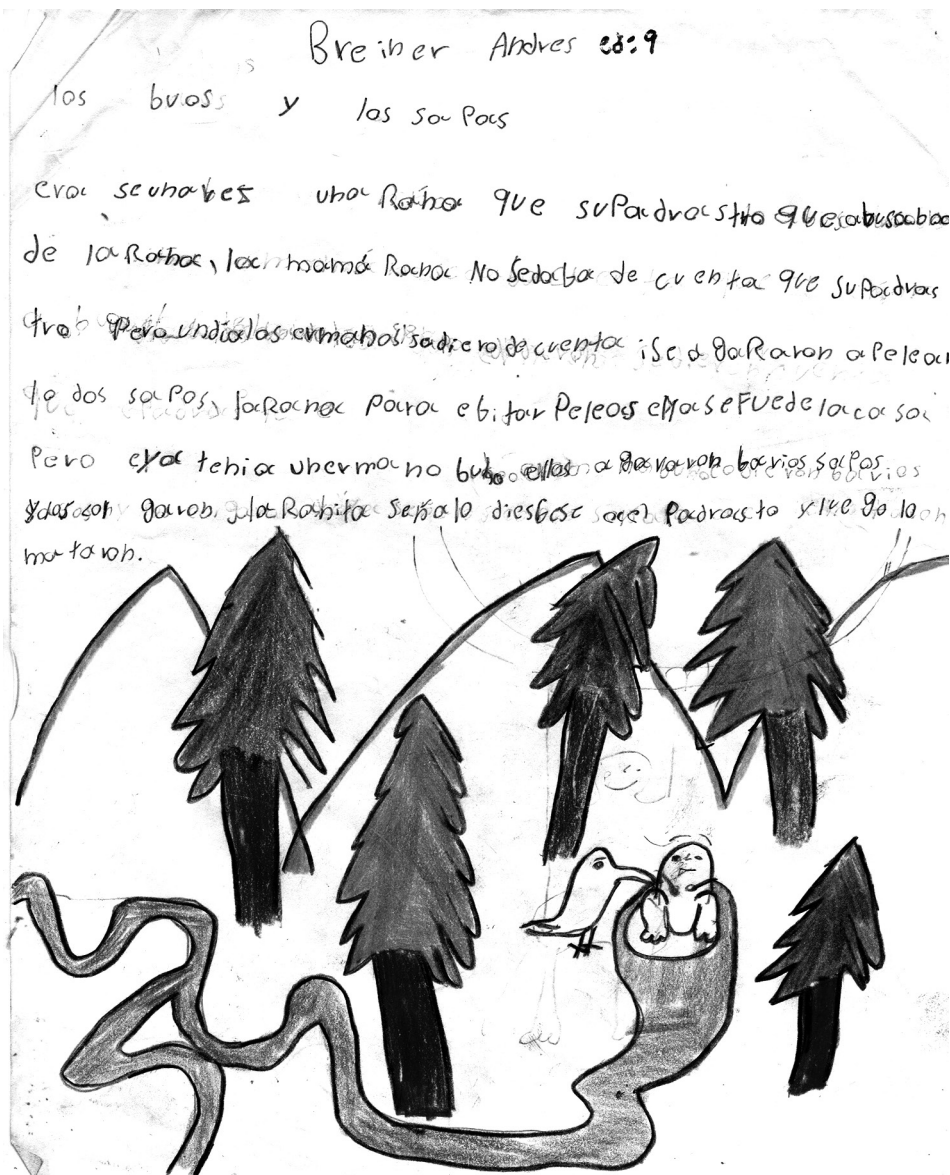 Breiner Andres ed:9
los buos y los sapos
era seunabes una Rana que supadrastro que abusaba
de la Rana, la mamá Rana No sedaba de cuenta que supadras
tro Pero undia los ermanos sadiero de cuenta i se agaRaron apelear
lo dos sapos, laRana para ebitar Peleas ellaseFuedelacasa
Pero eya tenia unermano buho ellos agavaron barios sapos
garon, la Ranita Señalo diesbese acel Padrasto y luego lo
mataron.